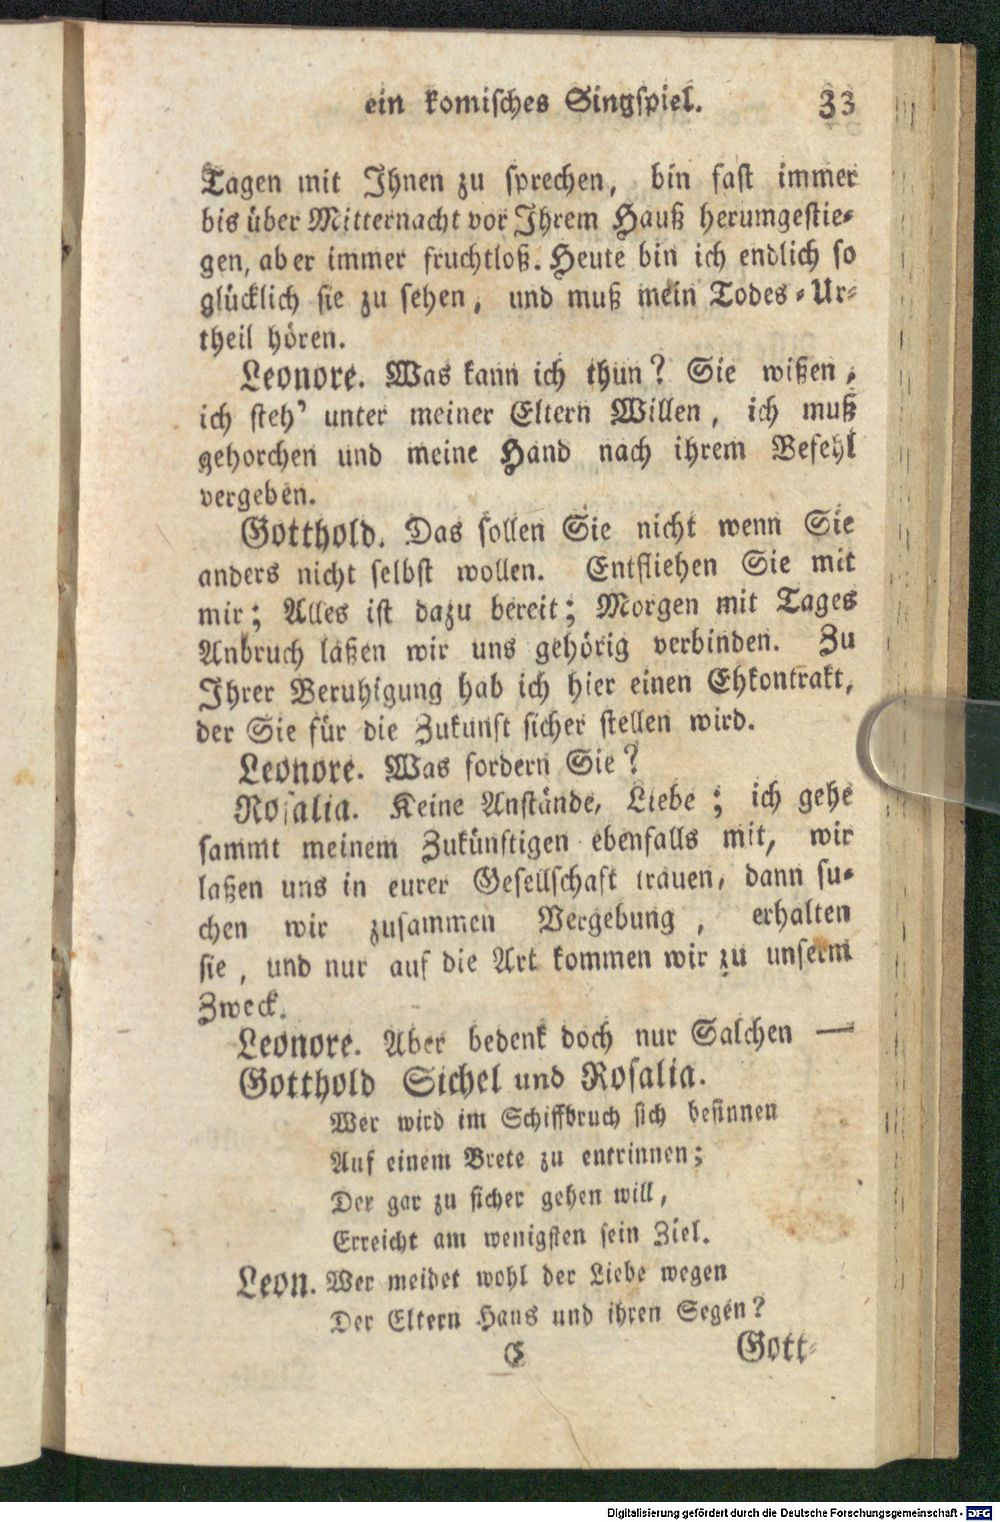 ein komisches Singspiel. 33
Tagen mit Ihnen zu sprechen, bin fast immer
bis über Mitternacht vor Ihrem Hauß herumgestie-
gen, aber immer fruchtloß. Heute bin ich endlich so
glücklich sie zu sehen, und muß mein Todes-Ur-
theil hören.
Leonore. Was kann ich thun? Sie wißen,
ich steh' unter meiner Eltern Willen, ich muß
gehorchen und meine Hand nach ihrem Befehl
vergeben.
Gotthold. Das sollen Sie nicht wenn Sie
anders nicht selbst wollen. Entfliehen Sie mit
mir; Alles ist dazu bereit; Morgen mit Tages
Anbruch laßen wir uns gehörig verbinden. Zu
Ihrer Beruhigung hab ich hier einen Ehkontrakt,
der Sie für die Zukunft sicher stellen wird.
Leonore. Was fordern Sie?
Rosalia. Keine Anstände, Liebe; ich gehe
sammt meinem Zukünftigen ebenfalls mit, wir
laßen uns in eurer Gesellschaft trauen, dann su-
chen wir zusammen Vergebung, erhalten
sie, und nur auf die Art kommen wir zu unserm
Zweck.
Leonore. Aber bedenk doch nur Salchen —
Gotthold Sichel und Rosalia.
Wer wird im Schiffbruch sich besinnen
Auf einem Brete zu entrinnen;
Der gar zu sicher gehen will,
Erreicht am wenigsten sein Ziel.
Leon. Wer meidet wohl der Liebe wegen
Der Eltern Haus und ihren Segen?
C Gott-
Digitalisierung gefördert durch die Deutsche Forschungsgemeinschaft - DFG